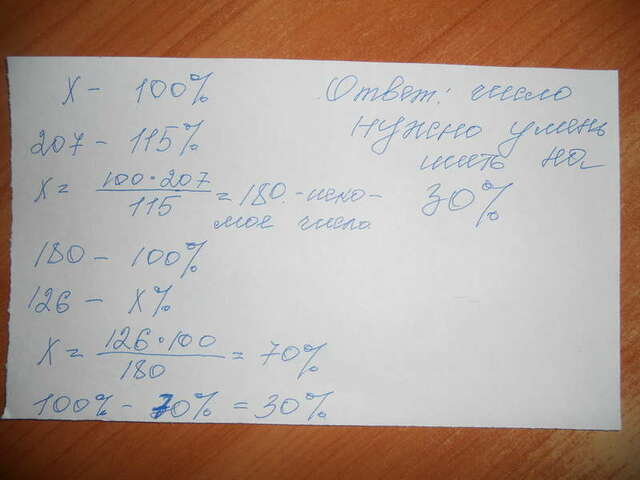 x - 100%
207 - 115%
x = 100·207 / 115 = 180 - иско-
мое число
180 - 100%
126 - x%
x = 126·100 / 180 = 70%
100% - 70% = 30%
Ответ: число
нужно умень
шить на
30%